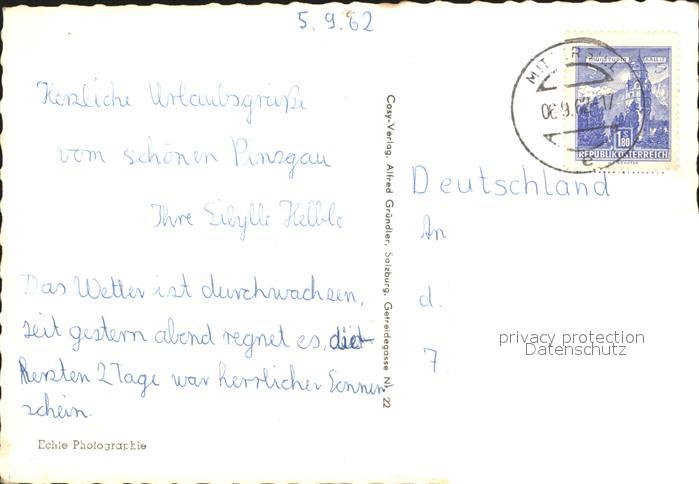 5.9.62
Herzliche Urlaubsgrüße
vom schönen Pinzgau
Ihre Sibylle Helble
Das Wetter ist durchwachsen,
seit gestern abend regnet es, die
ersten 2 Tage war herrlicher Sonnen-
schein.
Echte Photographie
Cosy-Verlag, Alfred Gründler, Salzburg, Getreidegasse Nr. 22
06.9.62-17
c
S
1.80
REPUBLIK ÖSTERREICH
Deutschland
An
d.
7
privacy protection
Datenschutz